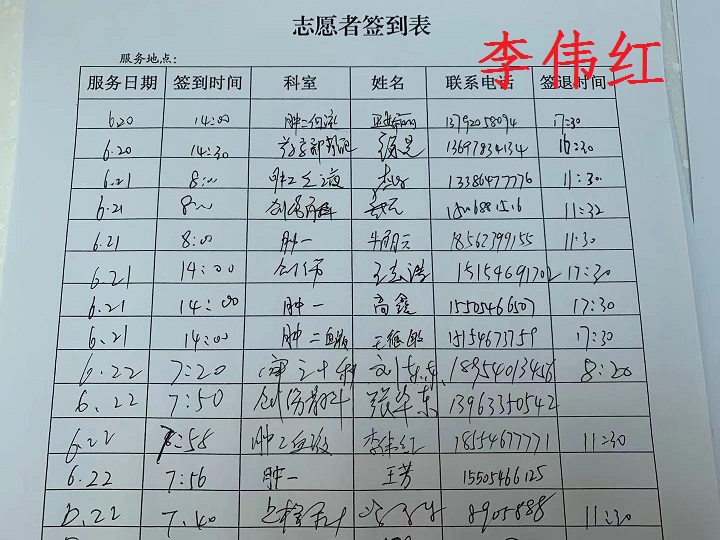 志愿者签到表
李伟红
服务地点：
服务日期 签到时间 科室 姓名 联系电话 签退时间
6.20 14:00 肿二 13792058094 17:30
6.20 14:30 13697834134 16:30
6.21 8:00 肿二 13386477776 11:30
6.21 8:00 11:32
6.21 8:00 肿一 18562399155 11:30
6.21 14:00 创伤 王志浩 15154691702 17:30
6.21 14:00 肿一 高鑫 15505466507 17:30
6.21 14:00 肿二血液 15154673759 17:30
6.22 7:20 刘东东 18954013456 8:20
6.22 7:50 创伤骨科 张华东 13963350542
6.22 7:58 肿二血液 李伟红 18554677771 11:30
6.22 7:56 肿一 王芳 15505466125
6.22 7.40 8905888 11:30